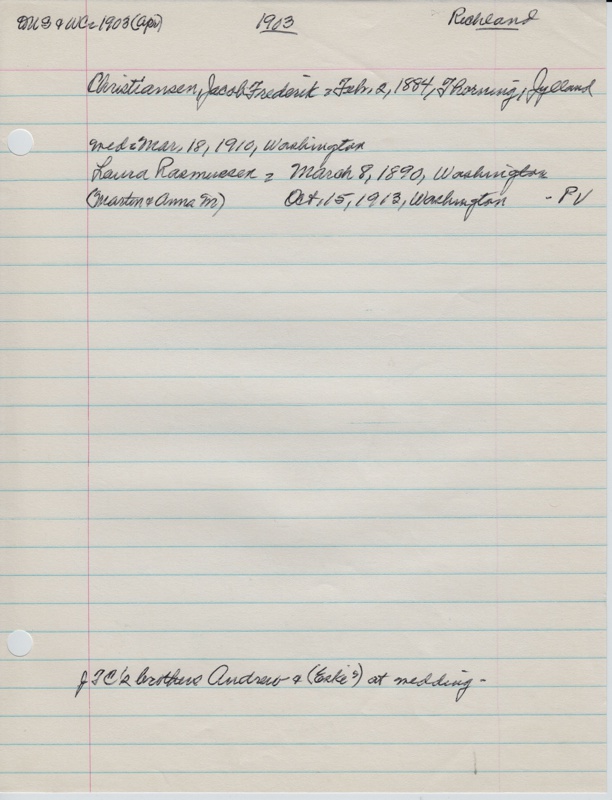 DMB & WC = 1903 (Apr) 1903 Richland
Christiansen, Jacob Frederik = Feb. 2, 1884, Thorning, Jylland
wed = Mar. 18, 1910, Washington
Laura Rasmussen = March 8, 1890, Washington
(Marton & Anna M) Oct. 15, 1913, Washington - PV
JFC's brothers Andrew & (Eske?) at wedding -